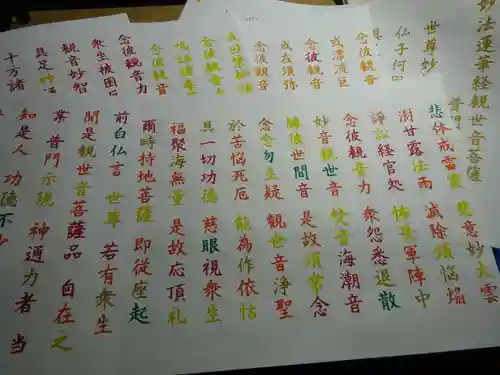 妙法蓮華經觀世音菩薩
普門
世尊妙
仏子何
念彼観音
或漂流巨
念彼観音
或在須弥
念彼観音
或囚禁枷
念彼観音
呪詛諸毒
念彼観音
念彼観音力
衆生被困
観音妙智
具足神
十方諸
悲体戒雷震 慈意妙大雲
澍甘露法雨 滅除煩悩焔
諍訟経官処 怖畏軍陣中
念彼観音力 衆怨悉退散
妙音観世音 梵音海潮音
勝彼世間音 是故須常念
念念勿生疑 観世音浄聖
於苦悩死厄 能為作依怙
具一切功徳 慈眼視衆生
福聚海無量 是故応頂礼
爾時持地菩薩 即従座起
前白仏言 世尊 若有衆生
聞是観世音菩薩品 自在之
業 普門示現 神通力者 当
知是人 功徳不少